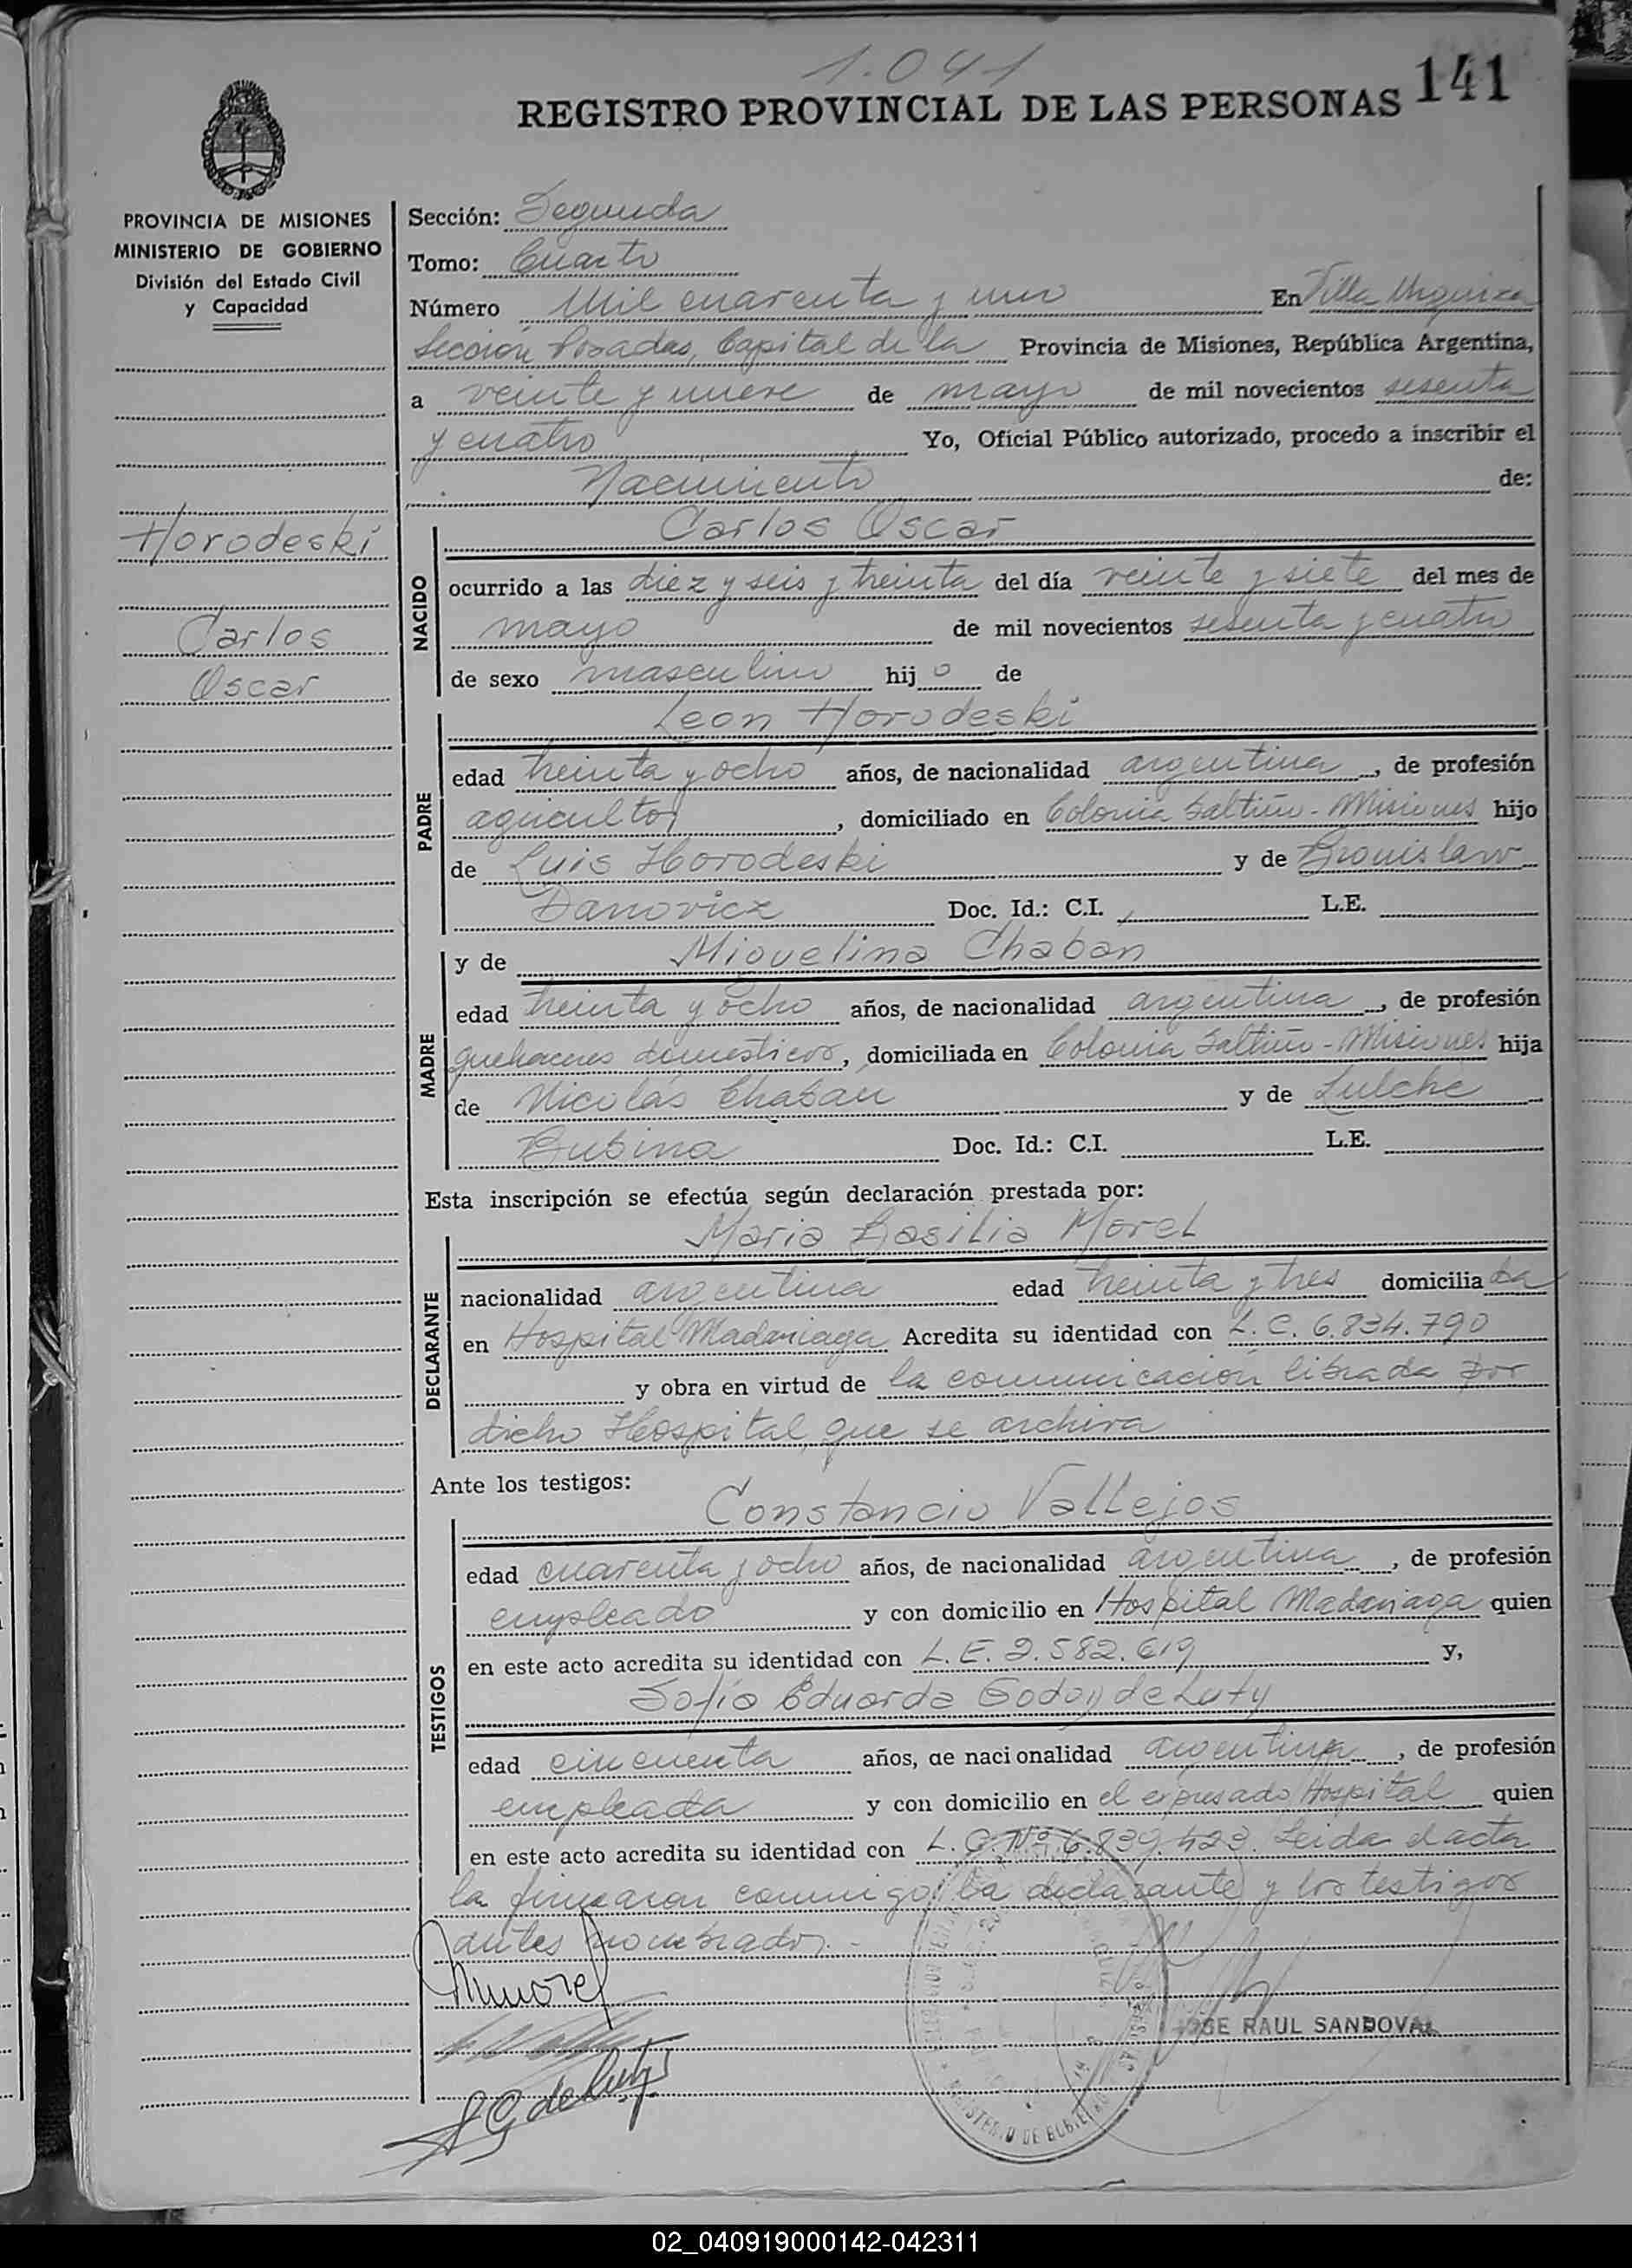 1.041
REGISTRO PROVINCIAL DE LAS PERSONAS 141
PROVINCIA DE MISIONES
MINISTERIO DE GOBIERNO
División del Estado Civil
y Capacidad
Horodeski
Carlos
Oscar
Sección: Segunda
Tomo: Cuarto
Número Mil cuarenta y uno En Villa Urquiza
Sección Posadas, Capital de la Provincia de Misiones, República Argentina,
a veinte y nueve de mayo de mil novecientos sesenta
y cuatro Yo, Oficial Público autorizado, procedo a inscribir el
Nacimiento de:
NACIDO
Carlos Oscar
ocurrido a las diez y seis y treinta del día veinte y siete del mes de
mayo de mil novecientos sesenta y cuatro
de sexo masculino hij o de
PADRE
Leon Horodeski
edad treinta y ocho años, de nacionalidad argentina, de profesión
agricultor, domiciliado en Colonia Saltiño - Misiones hijo
de Luis Horodeski y de Bronislaw
Danovicz Doc. Id.: C.I. L.E.
MADRE
y de Miguelina Chaban
edad treinta y ocho años, de nacionalidad argentina, de profesión
quehaceres domesticos, domiciliada en Colonia Saltiño - Misiones hija
de Nicolás Chaban y de Lulche
Bubina Doc. Id.: C.I. L.E.
Esta inscripción se efectúa según declaración prestada por:
DECLARANTE
Maria Basilia Morel
nacionalidad argentina edad treinta y tres domicilia da
en Hospital Madariaga Acredita su identidad con L.C. 6.834.790
y obra en virtud de la comunicación librada por
dicho Hospital, que se archiva
Ante los testigos:
TESTIGOS
Constancio Vallejos
edad cuarenta y ocho años, de nacionalidad argentina, de profesión
empleado y con domicilio en Hospital Madariaga quien
en este acto acredita su identidad con L.E. 2.582.619 y,
Sofia Eduarda Godoy de Luty
edad cincuenta años, de nacionalidad argentina, de profesión
empleada y con domicilio en el expresado Hospital quien
en este acto acredita su identidad con L.C. Nº 6.839.423. Leida el acta
la firmaron conmigo la declarante y los testigos
antes nombrados.-
Mmorel
JOSE RAUL SANDOVAL
S G de Luty
MINISTERIO DE GOBIERNO
02_040919000142-042311